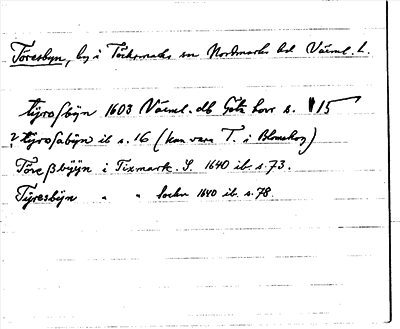 Töresbyn, by i Töcksmarks sn Nordmarks hd Värml. l.
tÿroſbÿn 1603 Värml. db Göta hovr s. 15
? tÿroſabÿn ib s. 16 (kan vara T. i Blomskog)
Töreßbÿÿn i Tixmark. S. 1640 ib. s. 73.
Tÿresbÿn " " sochn 1640 ib. s. 78.